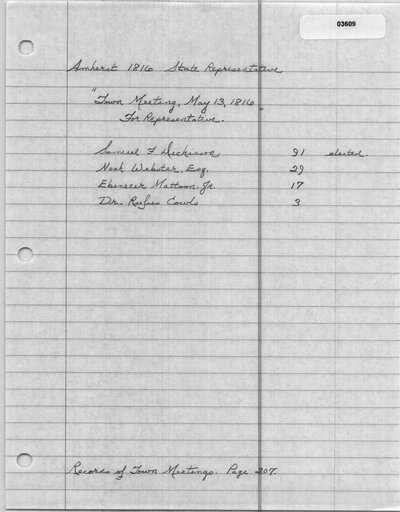 03609
Amherst 1816 State Representative
"Town Meeting, May 13, 1816
For Representative."
Samuel F Dickinson 91 elected.
Noah Webster, Esq. 29
Ebenezer Mattoon, Jr. 17
Dr. Rufus Cowls 3
Records of Town Meetings. Page 207.